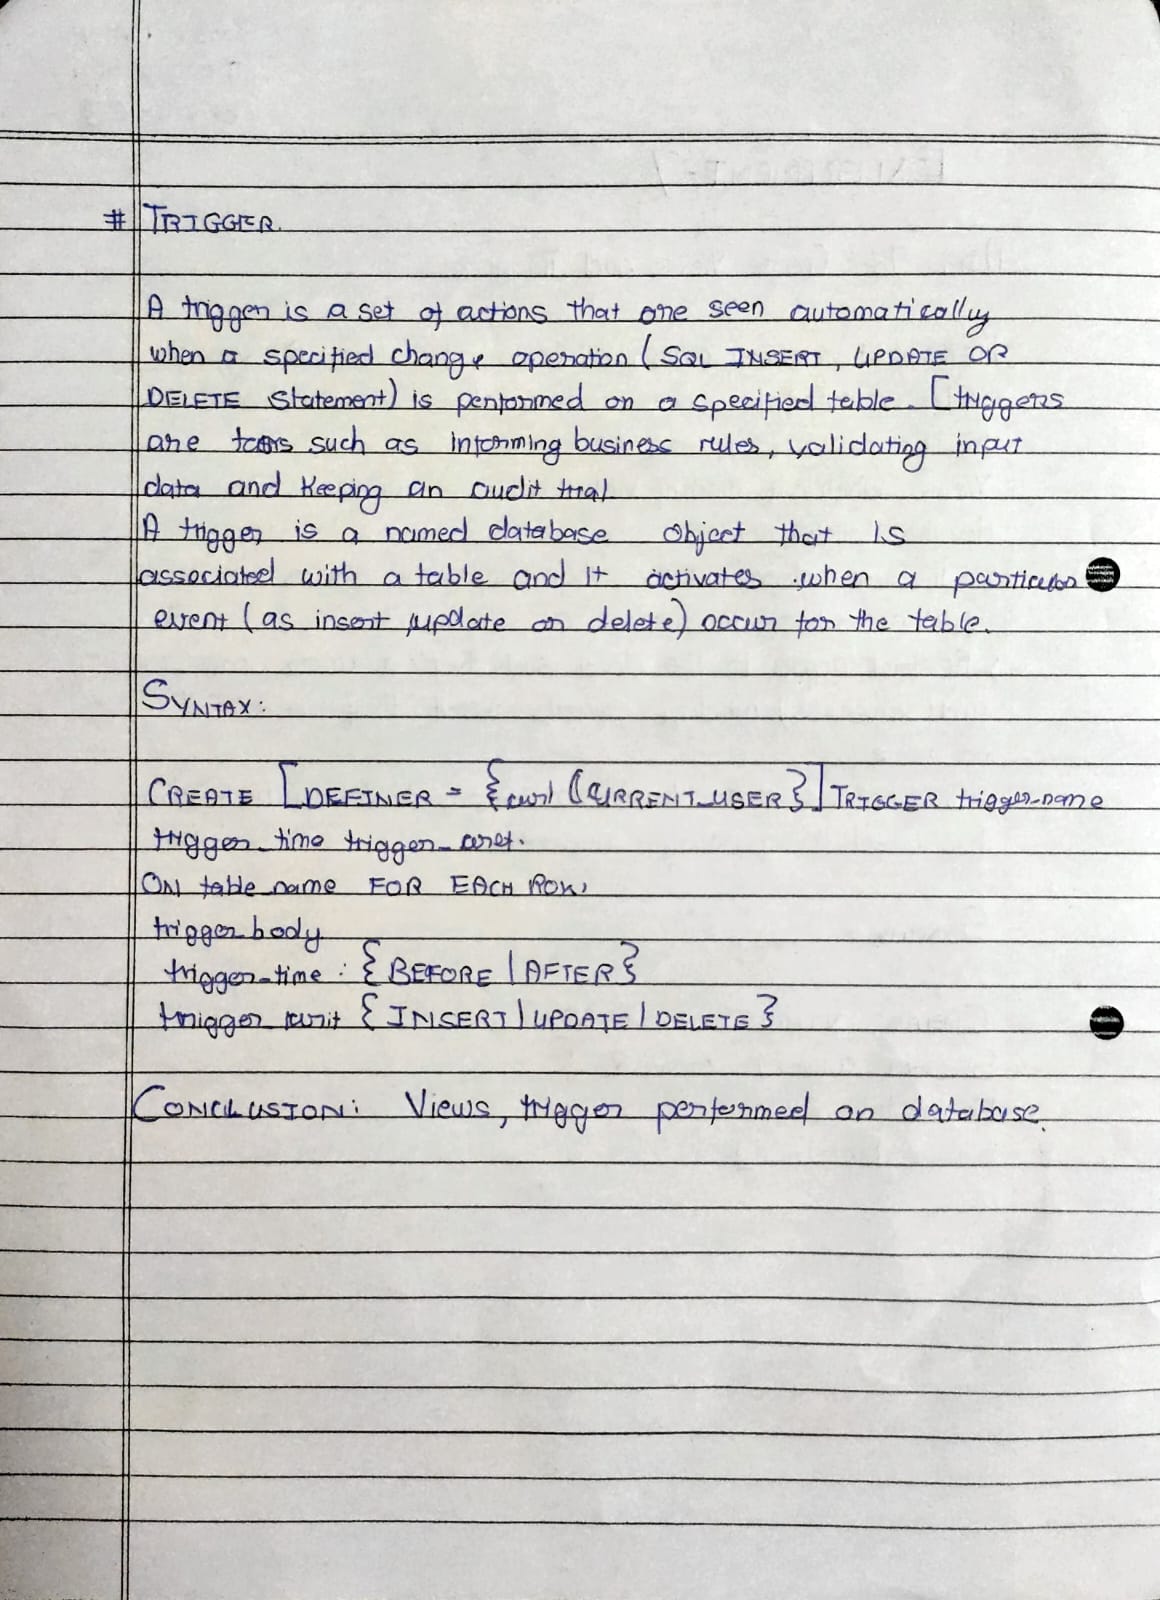 # TRIGGER.
A trigger is a set of actions that are seen automatically
when a specified change operation (SQL INSERT, UPDATE OR
DELETE statement) is performed on a specified table. [triggers
are such as informing business rules, validating input
data and keeping an audit trial
A trigger is a named database object that is
associated with a table and it activates when a particular
event (as insert, update or delete) occur for the table.
SYNTAX:
CREATE [DEFINER = { (CURRENT_USER}] TRIGGER trigger_name
trigger_time trigger_
ON table_name FOR EACH ROW,
trigger body
trigger_time : {BEFORE | AFTER}
trigger {INSERT | UPDATE | DELETE}
CONCLUSION: Views, trigger performed on database.